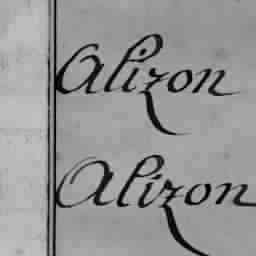 Alizon
Alizon